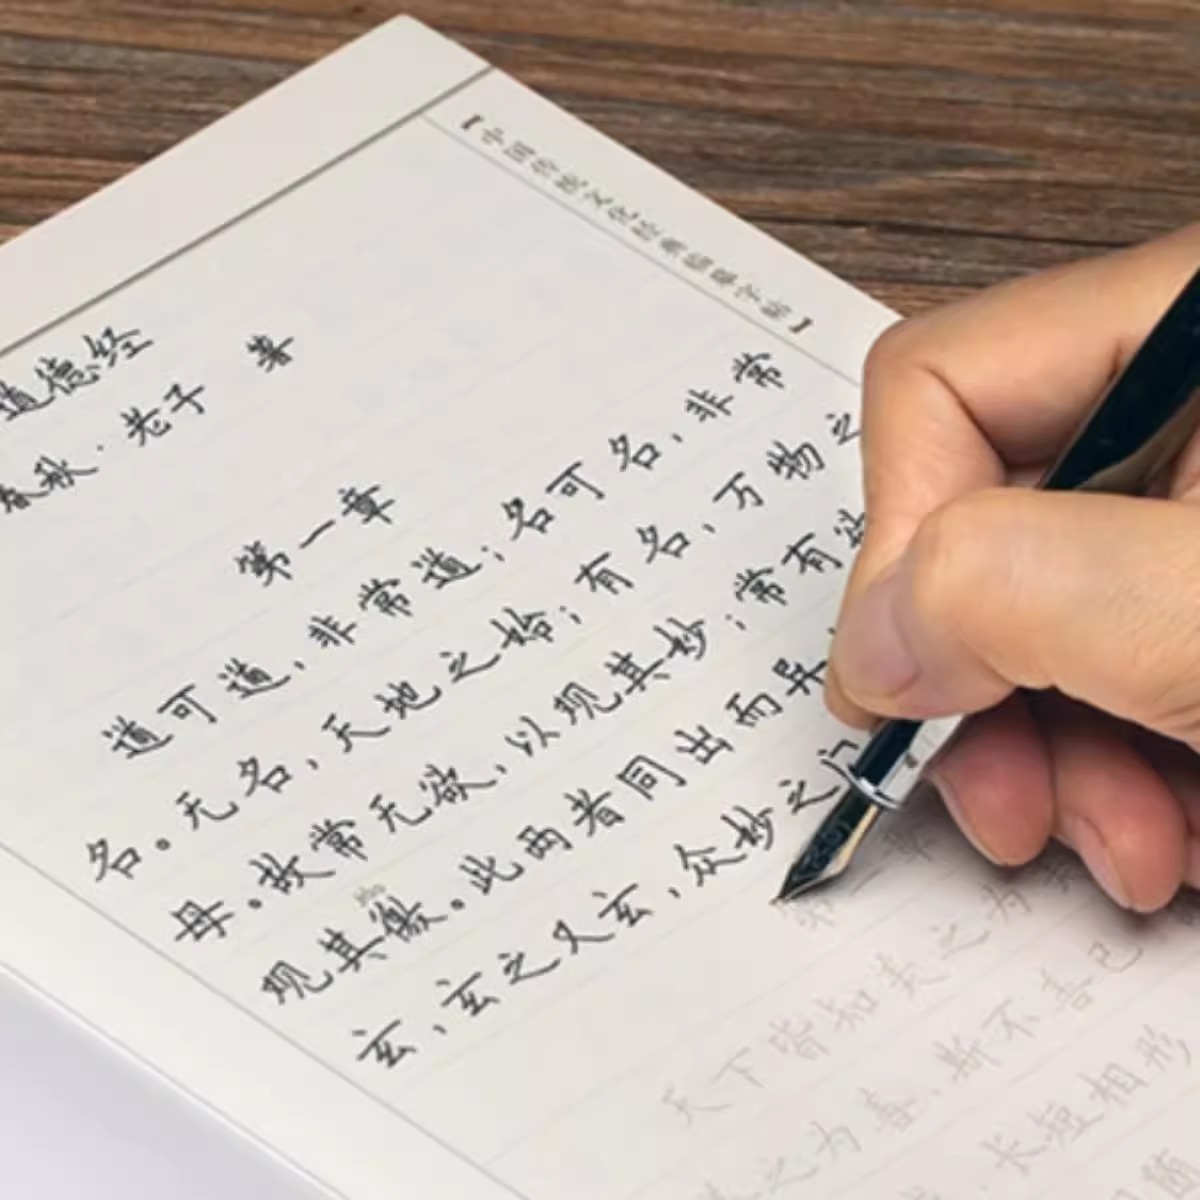 【中国传统文化经典临摹字帖】
道德经
春秋·老子 著
第一章
道可道,非常道;名可名,非常
名。无名,天地之始;有名,万物之
母。故常无欲,以观其妙;常有欲
观其徼。此两者同出而异
jiào
玄,玄之又玄,众妙之门
第二章
天下皆知美之为美
之为善,斯不善已
长短相形
随